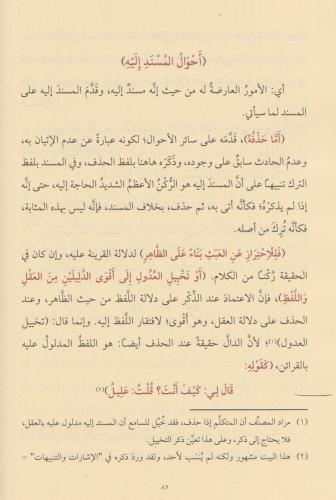 (أَحْوَالُ المُسْنَدِ إِلَيْهِ)
أي: الأمورُ العارضةُ له من حيث إنَّه مسندٌ إليه، وقَدَّمَ المسندَ إليه على
المسند لما سيأتي.
(أَمَّا حَذْفُهُ)، قَدَّمَه على سائر الأحوال؛ لكونه عبارةً عن عدم الإتيان به،
وعدمُ الحادث سابقٌ على وجوده، وذَكَرَه هاهنا بلفظ الحذف، وفي المسند بلفظ
الترك تنبيهًا على أنَّ المسندَ إليه هو الرُّكْنُ الأعظمُ الشديدُ الحاجةِ إليه، حتى إنَّه
إذا لم يذكرْهُ؛ فكأنَّه أتى به، ثم حذف، بخلاف المسند، فإنَّه ليس بهذه المثابة،
فكأنَّه تُرِكَ من أصله.
(فَلِلْاحْتِرَازِ عَنِ العَبَثِ بِنَاءً عَلَى الظَّاهِرِ) لدلالة القرينة عليه، وإن كان في
الحقيقة رُكْنًا من الكلام. (أَوْ تَخْيِيلِ العُدُولِ إِلَى أَقْوَى الدَّلِيلَيْنِ مِنَ العَقْلِ
وَاللَّفْظِ)، فإنَّ الاعتمادَ عند الذِّكْر على دلالة اللَّفظ من حيث الظَّاهر، وعند
الحذف على دلالة العقل، وهو أقْوى؛ لافتقار اللَّفظ إليه. وإنما قال: (تخييل
العدول)(١)؛ لأنَّ الدالَّ حقيقةً عند الحذف أيضًا: هو اللفظُ المدلولُ عليه
بالقرائن، (كَقَوْلِهِ:
قَالَ لِي: كَيْفَ أَنْتَ؟ قُلْتُ: عَلِيلُ)(٢)
(١) مراد المصنِّف أن المتكلِّم إذا حذف، فقد خُيِّل للسامع أن المسند إليه مدلول عليه بالعقل،
فلا يحتاج إلى ذكر، وعلى هذا تعيَّن ذكر التخييل.
(٢) هذا البيت مشهور ولكنه لم يُنسَب لأحد، ولقد ورد ذكره في "الإشارات والتنبيهات" =
٨٦